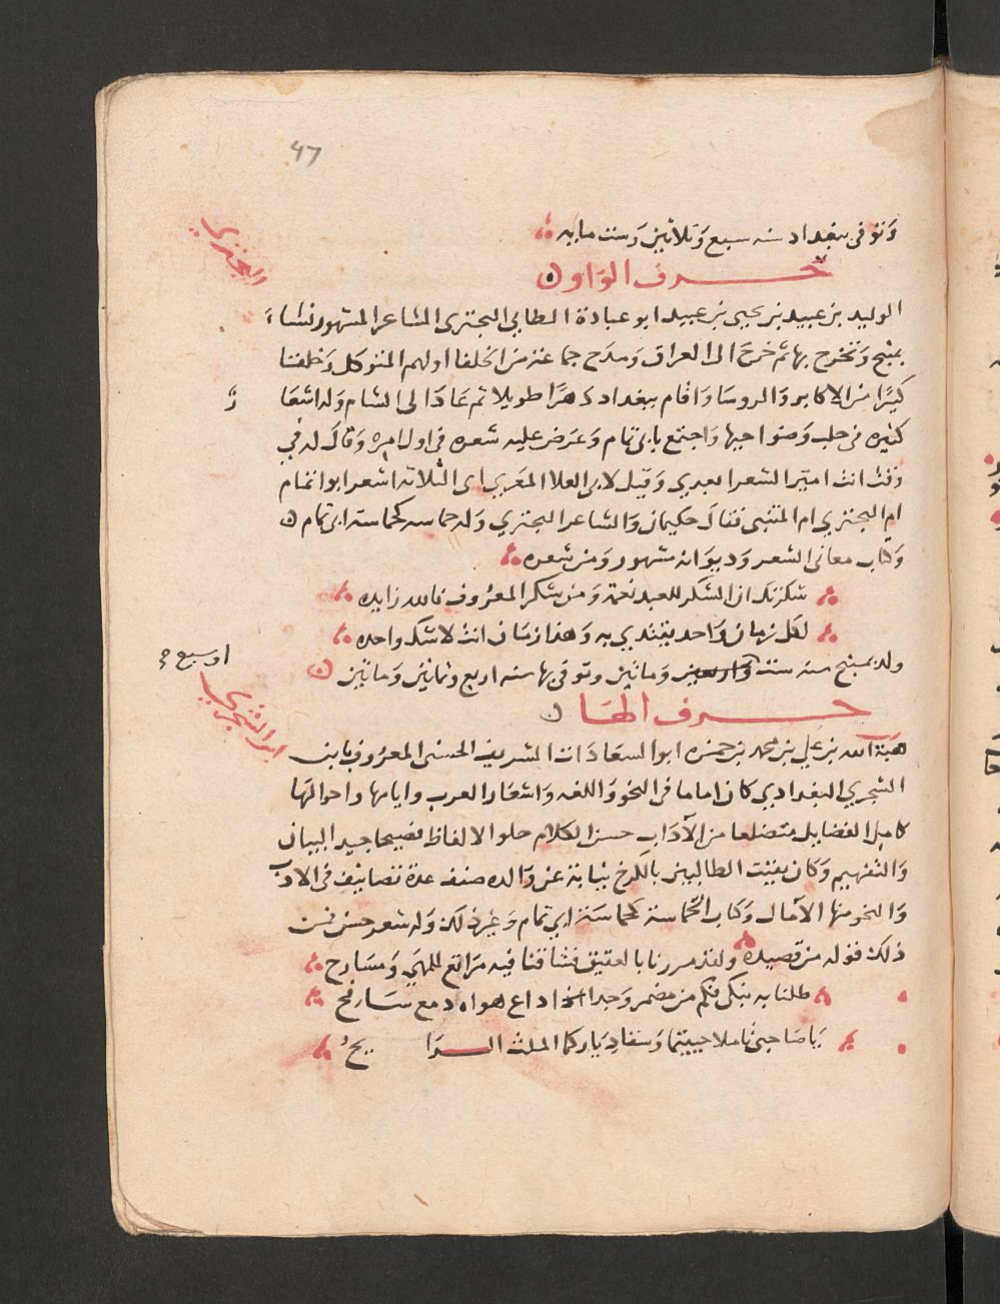 47
وتوفى ببغداد سنه سبع وثلاثين وست مايه
البحتري
حرف الواو
الوليد بن عبيد بن يحيى بن عبيد ابو عبادة الطايي البحترى الشاعر المشهور نشاء
بمنبج وتخرج بها ثم خرج الى العراق ومدح جماعة من الخلفا اولهم المتوكل وخلقا
كثيرا من الاكابر والروسا واقام ببغداد دهرا طويلا ثم عاد الى الشام وله اشعا
ر
كثيره فى حلب وضواحيها واجتمع بابى تمام وعرض عليه شعره فى اول امره وقال له في
وقت انت امير الشعرا بعدي وقيل لابى العلا المعري اى الثلاثه اشعر ابو اتمام
ام البحتري ام المتنبى فقال حكيمان والشاعر البحتري وله حماسه كحماسة ابى تمام
وكتاب معانى الشعر وديوانه مشهور ومن شعره
شكرتك ان الشكر للعبد نعمة ومن شكر المعروف فالله زايده
لكل زمان واحد يقتدي به وهذا زمان انت لا شك واحده
ولد بمنبج سنه ست وماتين وتوفى بها سنه اربع وثمانين وماتين
او سبع
حرف الها
ابن الشجري
هبة الله بن علي بن محمد بن حمزه ابو السعادات الشريف الحسنى المعروف بابن
الشجري البغدادي كان اماما فى النحو واللغه واشعار العرب وايامها واحوالها
كامل الفضايل متضلعا من الآداب حسن الكلام حلو الالفاظ فصيحا جيد البيان
والتفهيم وكان نقيب الطالبين بالكرخ نيابة عن والده صنف عدة تصانيف فى الادب
والنحو منها الآمال وكتاب الحماسة كحماسة ابي تمام وغير ذلك وله شعر حسن فمن
ذلك قوله من قصيده ولقد مررنا بالعقيق فشاقنا فيه مراتع للمهي ومسارح
ظلنا به نبكى فكم من مضمر وجدا اذاع هواه دمع سافح
يا صاحبى تاملا حييتما وسقا دياركما الملث الرايح